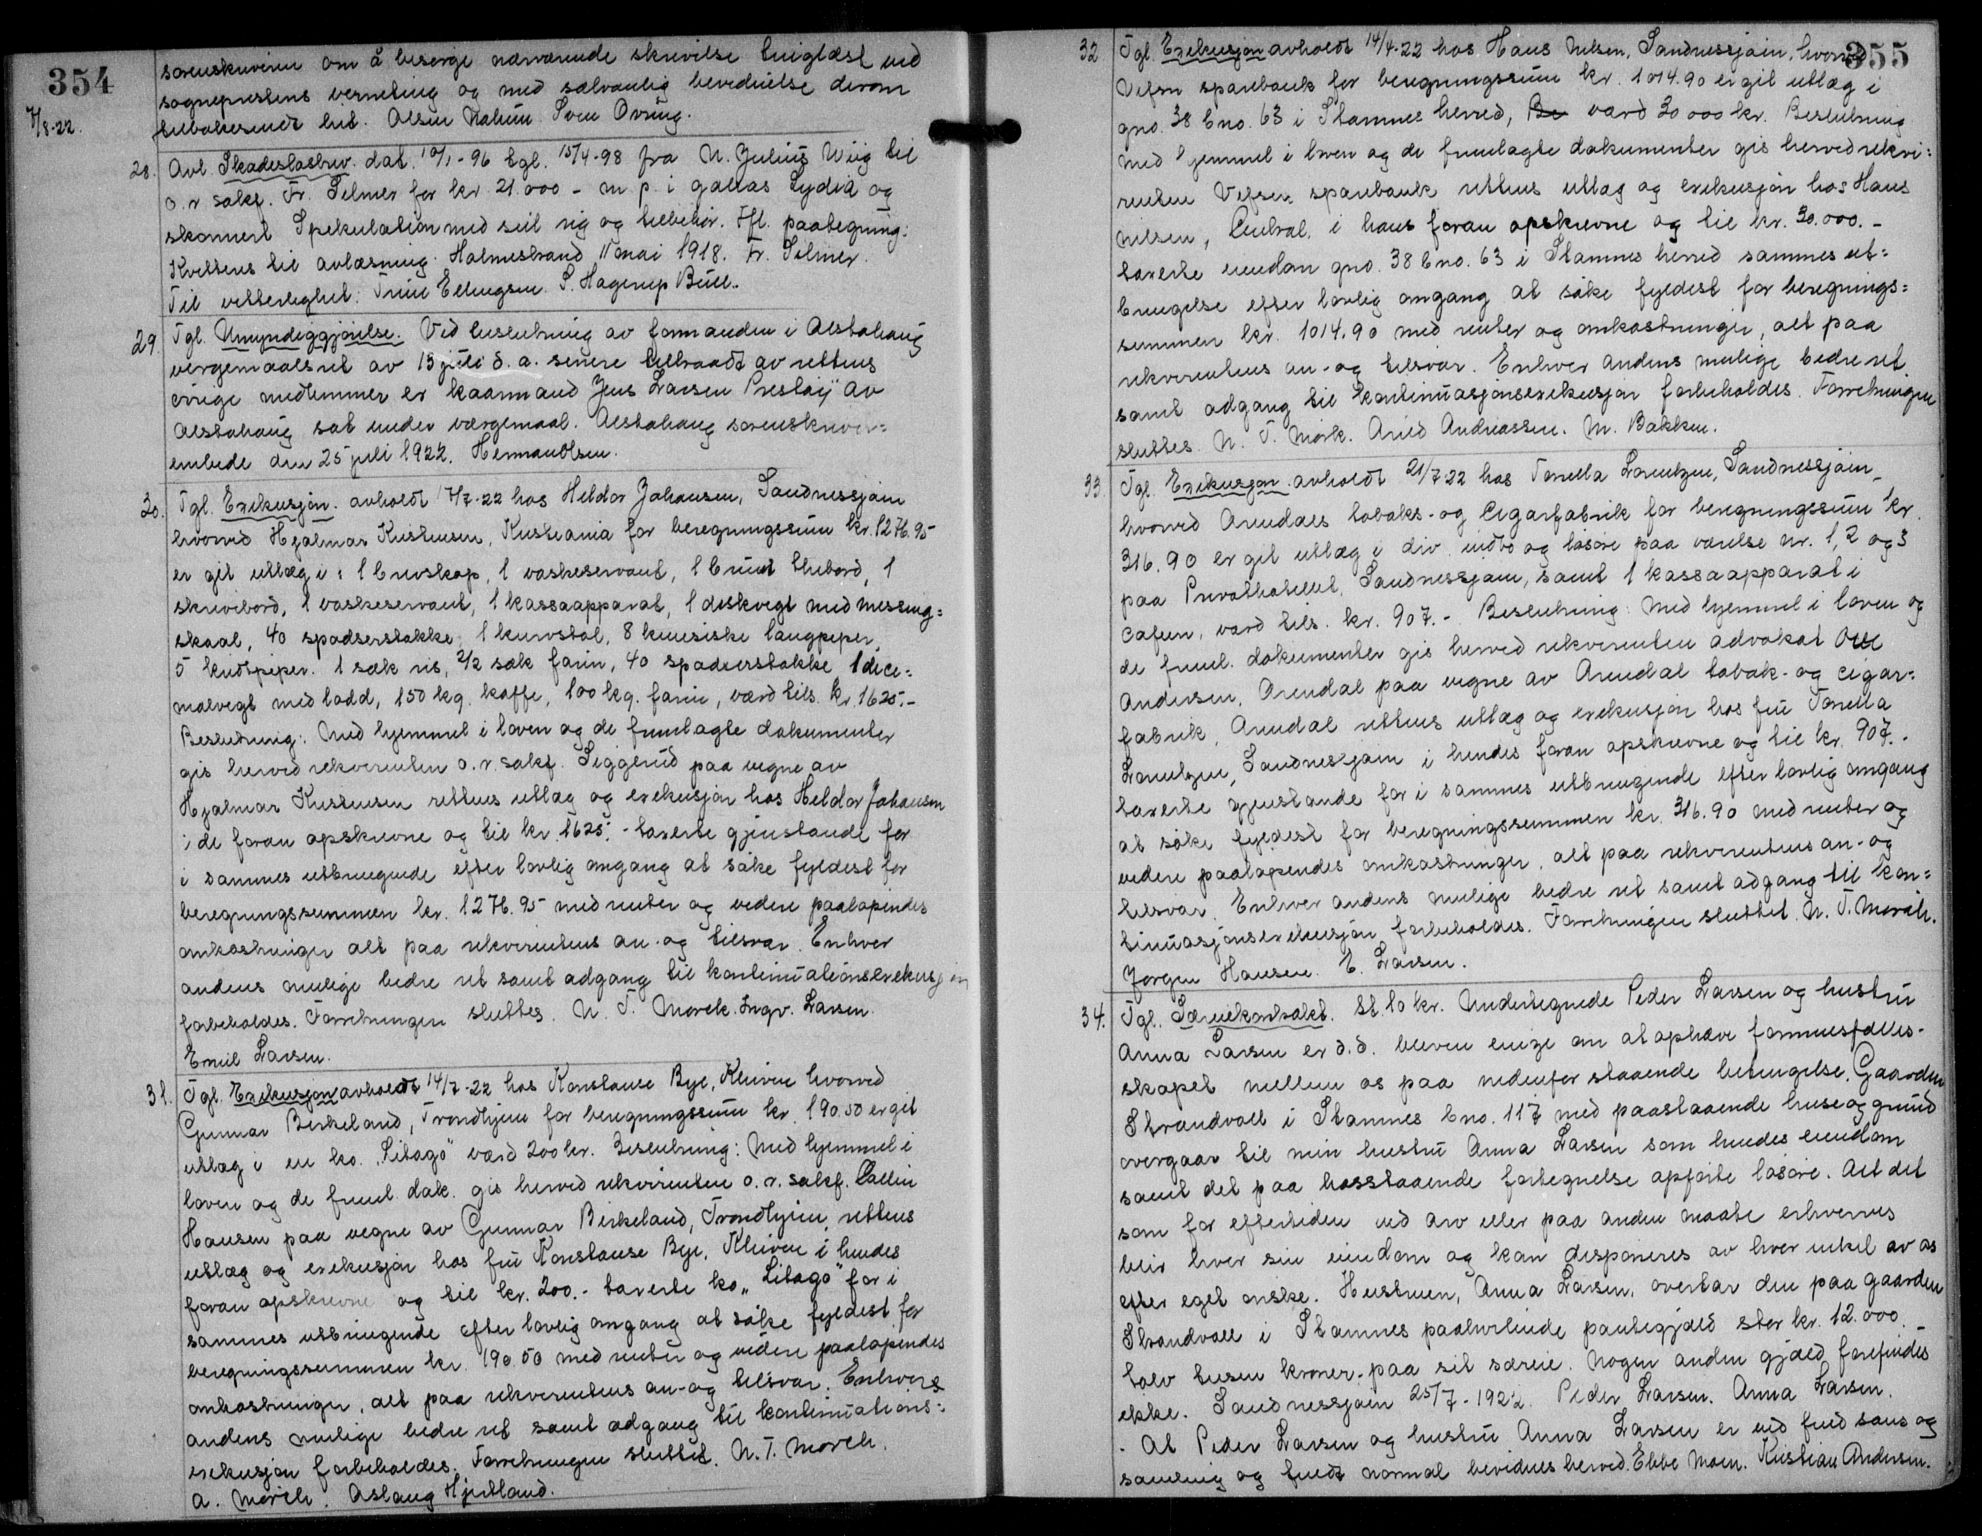 354
sorenskriveren om å besørge nærværende skrivelse tinglæst ved
sogneprestens verneting og med sedvanlig bevidnelse derom
7/8-22.
tilbakesendt hit. Olsen Nalum Sven Øvring.
28. Avl. Skadesløsbrev dat. 10/1-96 tgl. 15/4-98 fra N. Julius Wiig til
o.r sakf. Fr. Selmer for kr 21.000 - m. p. i galeas Lydia og
skonnert Spekulation med seil rig og tilbehør. Ifl. paategning:
Kvitteres til avlæsning. Holmestrand 11 mai 1918. Fr. Selmer.
Til vitterlighet: Trine Ellingsen. S. Hagerup Bull.
29. Tgl. Umyndiggjørelse. Ved beslutning av formanden i Alstahaug
vergemaalsret av 15 juli d. a. senere tiltraadt av rettens
øvrige medlemmer er kaarmand Jens Larsen Prestøy av
Alstahaug sat under værgemaal. Alstahaug sorenskriver=
embede den 25 juli 1922. Herman Olsen.
30. Tgl. Exekusjon. avholdt 7/7-22 hos Heldor Johansen, Sandnessjøen
hvorved Hjalmar Kristensen, Kristiania for beregningssum kr. 1276.95
er git utlæg i: 1 brevskap, 1 vaskeservant, 1 brunt thebord, 1
skrivebord, 1 vaskeservant, 1 kassaapparat, 1 diskvegt med messing=
skaal, 40 spadserstokke, 1 kurvstol, 8 kinesiske langpiper,
5 kridtpiper. 1 sæk ris, 2/2 sæk farin, 40 spadserstokke 1 dece=
malvegt med lodd, 150 kg. kaffe, 100 kg. farin, værd tils. kr. 1625.-
Beslutning: Med hjemmel i loven og de fremlagte dokumenter
gis herved rekvirenten o.r. sakf. Siggerud paa vegne av
Hjalmar Kristensen rettens utlæg og exekusjon hos Heldor Johansen
i de foran opskrevne og til kr 1625.- taxerte gjenstande for
i sammes utbringende efter lovlig omgang at søke fyldest for
beregningssummen kr. 1276.95 med renter og videre paaløpendes
omkostninger alt paa rekvirentens an- og tilsvar. Enhver
andens mulige bedre ret samt adgang til kontinuationsexekusjon
forbeholdes. Forretningen sluttes. N. T. Mørck. Ingv. Larsen.
Emil Larsen.
31. Tgl. Exekusjon avholdt 14/7-22 hos Konstanse Bye, Kleiven hvorved
Gunnar Birkeland, Trondhjem for beregningssum kr. 190.50 er git
utlæg i en ko „Litago" værd 200 kr. Beslutning: Med hjemmel i
loven og de freml. dok. gis herved rekvirenten o.r. sakf. Collin
Hansen paa vegne av Gunnar Birkeland, Trondhjem, rettens
utlæg og exekusjon hos fru Konstanse Bye, Kleiven i hendes
foran opskrevne og til kr. 200.- taxerte ko „Litago" for i
sammes utbringende efter lovlig omgang at søke fyldest for
beregningssummen kr. 190.50 med renter og videre paaløpendes
omkostninger, alt paa rekvirentens an- og tilsvar. Enhvers
andens mulige bedre ret samt adgang til kontinuations=
exekusjon forbeholdes. Forretningen sluttet. N. T. Mørch.
A. Mørch. Aslaug Hjertland.
355
32 Tgl. Exekusjon avholdt 14/4-22 hos Hans Nilsen, Sandnessjøen, hvorved
Vefsn sparebank for beregningssum kr. 1014.90 er git utlæg i
gno. 38 bno. 63 i Stamnes herred, Be værd 30 000 kr. Beslutning
med hjemmel i loven og de fremlagte dokumenter gis herved rekvi=
renten Vefsn sparebank rettens utlæg og exekusjon hos Hans
Nilsen, Central. i hans foran opskrevne og til kr. 30.000.-
taxerte eiendom gno. 38 bno. 63 i Stamnes herred sammes ut=
bringelse efter lovlig omgang at søke fyldest for beregnings=
summen kr. 1014.90 med renter og omkostninger, alt paa
rekvirentens an- og tilsvar. Enhver andens mulige bedre ret
samt adgang til kontinuasjonsexekusjon forbeholdes. Forretningen
sluttes. N. T. Mørk. Arild Andreassen. M. Bakken.
33. Tgl. Exekusjon avholdt 21/7-22 hos Torella Lorentzen, Sandnessjøen
hvorved Arendals tobaks- og Cigarfabrik for beregningssum kr.
316.90 er git utlæg i div. indbo og løsøre paa værelse nr. 1, 2 og 3
paa Privathotellet, Sandnessjøen, samt 1 kassaapparat i
cafeen, værd tils. kr. 907.- Beslutning: Med hjemmel i loven og
de freml. dokumenter gis herved rekvirenten advokat Ole
Andersen, Arendal paa vegne av Arendal tobak- og cigar=
fabrik, Arendal rettens utlæg og exekusjon hos fru Torella
Lorentzen, Sandnessjøen i hendes foran opskrevne og til kr. 907.-
taxerte gjenstande for i sammes utbringende efter lovlig omgang
at søke fyldest for beregningssummen kr. 316.90 med renter og
videre paaløpendes omkostninger, alt paa rekvirentens an- og
tilsvar. Enhver andens mulige bedre ret samt adgang til kon=
tinuasjonsexekusjon forbeholdes. Forretningen sluttet. N. T. Mørch.
Jørgen Hansen. E. Larsen.
34. Tgl. Særeiekontrakt. St. 10 kr. Undertegnede Peder Larsen og hustru
Anna Larsen er d.d. bleven enige om at ophæve formuesfælles-
skapet mellem os paa nedenfor staaende betingelse. Gaarden
Strandvoll i Stamnes bno. 117 med paastaaende huse og grund
overgaar til min hustru Anna Larsen som hendes eiendom
samt det paa hosstaaende fortegnelse opførte løsøre. Alt det
som for eftertiden ved arv eller paa anden maate erhverves
blir hver sin eiendom og kan disponeres av hver enkel av os
efter eget ønske. Hustruen, Anna Larsen, overtar den paa gaarden
Strandvoll i Stamnes paahvilende pantegjæld stor kr. 12.000.-
tolv tusen kroner- paa sit særeie. Nogen anden gjæld forefindes
ikke. Sandnessjøen 25/7-1922. Peder Larsen. Anna Larsen.
. At Peder Larsen og hustru Anna Larsen er ved fuld sans og
samling og fuldt normal bevidnes herved. Ebbe Moen. Kristian Andersen.